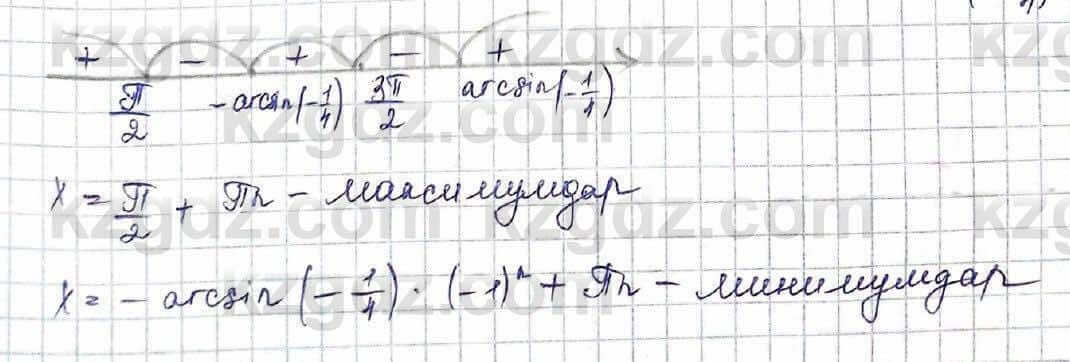 + − + − +
π/2 −arcsin(−1/4) 3π/2 arcsin(−1/4)
x = π/2 + πn − максимумдар
x = − arcsin(−1/4) · (−1)ⁿ + πn − минимумдар
kzgdz.com